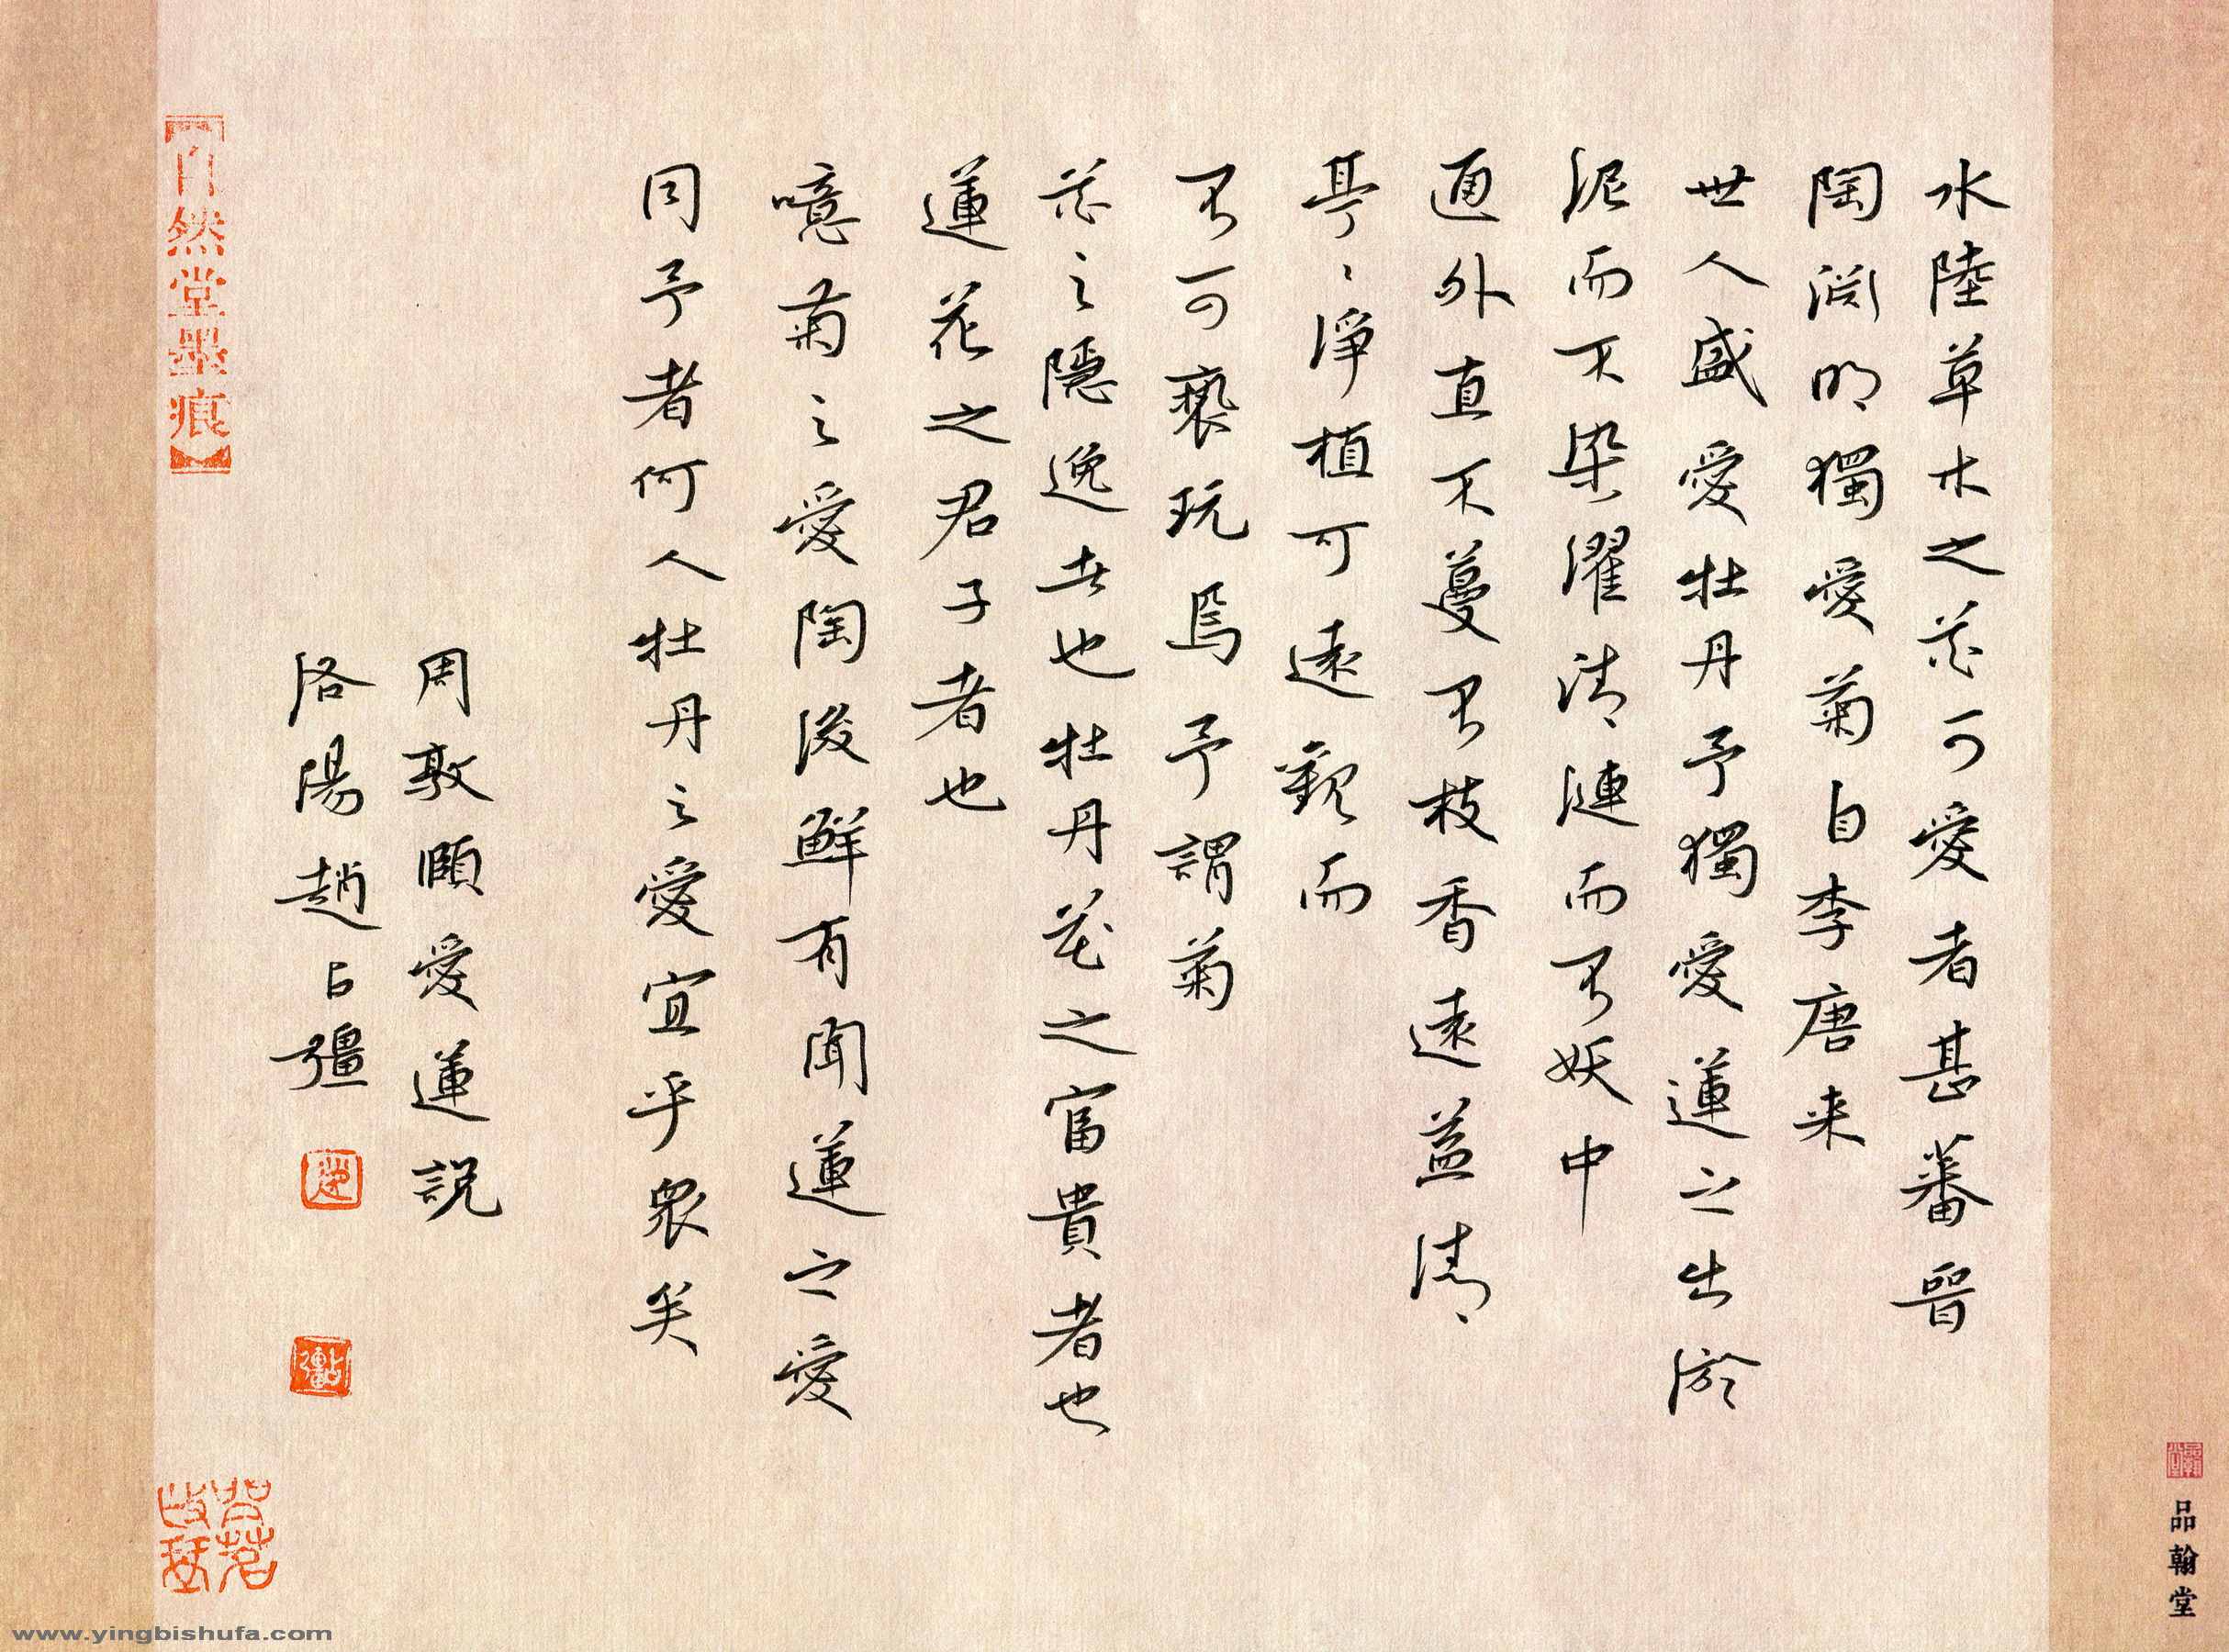 水陸草木之花可愛者甚蕃晉
陶淵明獨愛菊自李唐来
世人盛愛牡丹予獨愛蓮之出淤
泥而不染濯清漣而不妖中
通外直不蔓不枝香遠益清
亭〻淨植可遠觀而
不可褻玩焉予謂菊
花之隱逸者也牡丹花之富貴者也
蓮花之君子者也
噫菊之愛陶後鮮有聞蓮之愛
同予者何人牡丹之愛宜乎眾矣
周敦頤愛蓮說
洛陽趙占彊
自然堂墨痕
品翰堂
www.yingbishufa.com